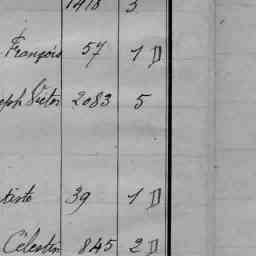 1418 3
François 57 1 D
eph Victor 2083 5
tiste 39 1 D
Célestin 845 2 D